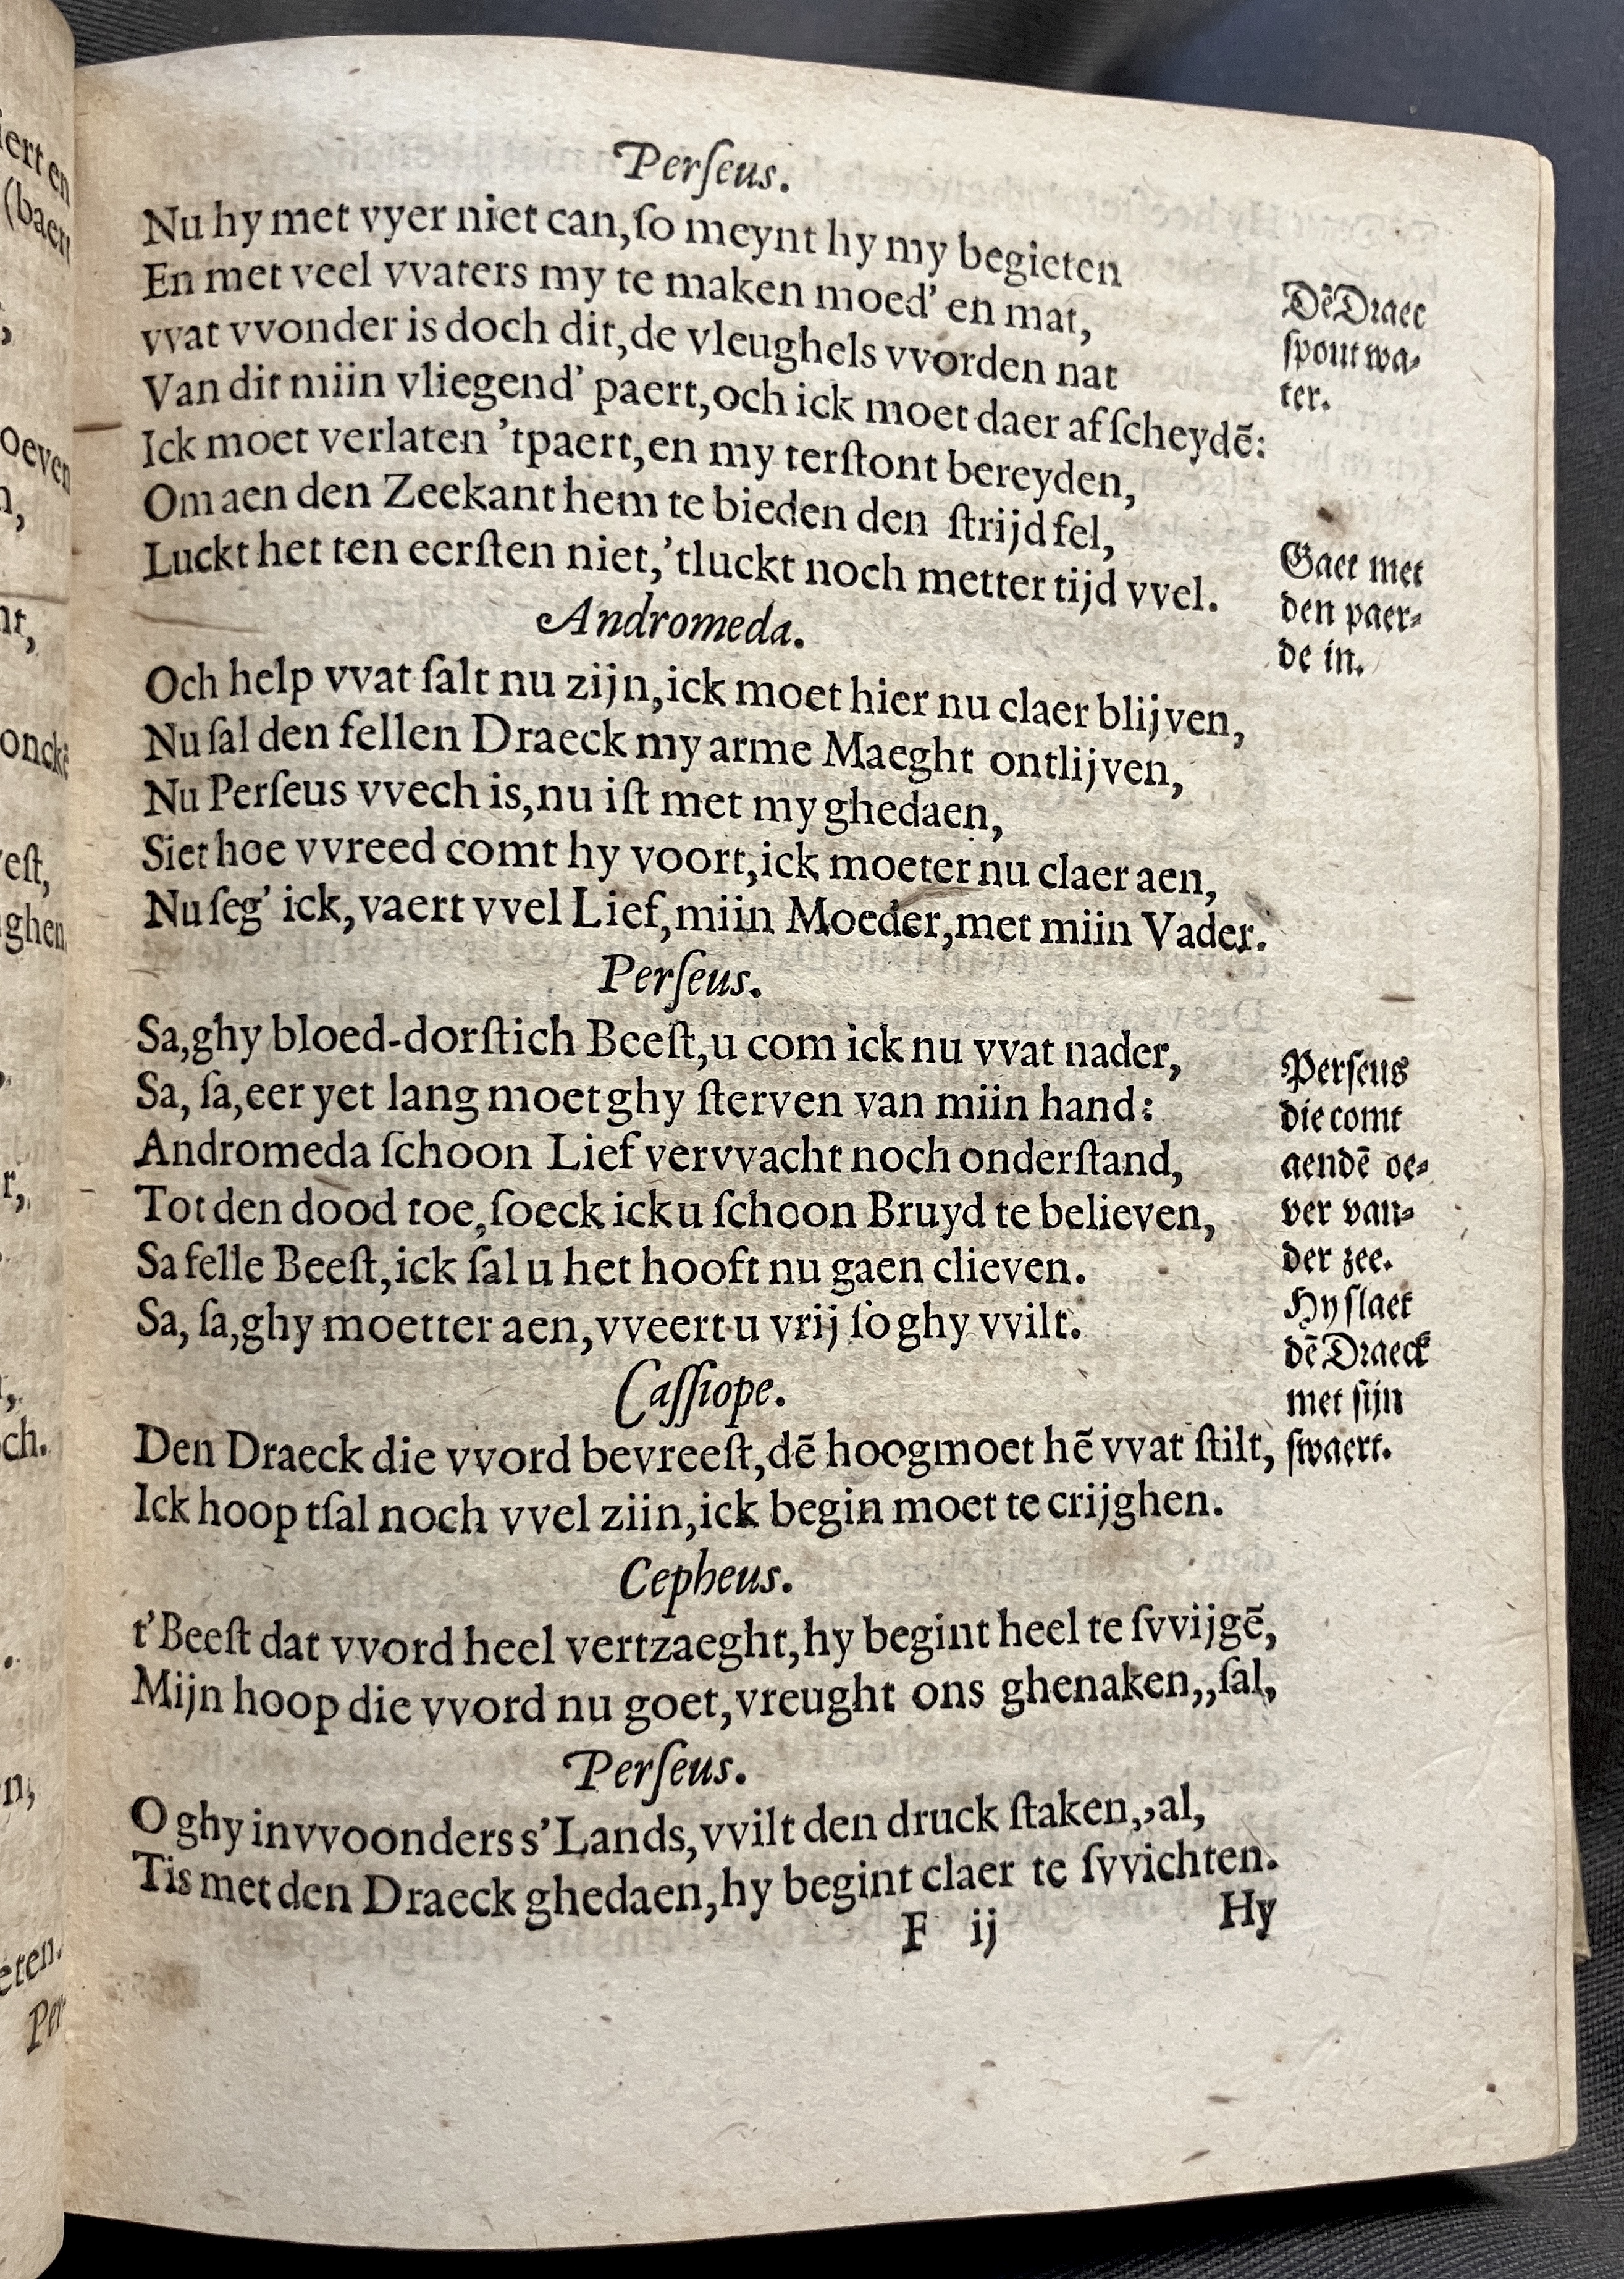 Perſeus.
Nu hy met vyer niet can, ſo meynt hy my begieten
En met veel vvaters my te maken moed' en mat,
vvat vvonder is doch dit, de vleughels vvorden nat
Van dit miin vliegend' paert, och ick moet daer af ſcheydē:
Ick moet verlaten 'tpaert, en my terſtont bereyden,
Om aen den Zeekant hem te bieden den ſtrijd fel,
Luckt het ten eerſten niet, 'tluckt noch metter tijd vvel.
Dē Draec
ſpout wa-
ter.
Gaet met
den paer-
de in.
Andromeda.
Och help vvat ſalt nu zijn, ick moet hier nu claer blijven,
Nu ſal den fellen Draeck my arme Maeght ontlijven,
Nu Perſeus vvech is, nu iſt met my ghedaen,
Siet hoe vvreed comt hy voort, ick moeter nu claer aen,
Nu ſeg' ick, vaert vvel Lief, miin Moeder, met miin Vader.
Perſeus.
Sa, ghy bloed-dorſtich Beeſt, u com ick nu vvat nader,
Sa, ſa, eer yet lang moet ghy ſterven van miin hand:
Andromeda ſchoon Lief vervvacht noch onderſtand,
Tot den dood toe, ſoeck ick u ſchoon Bruyd te believen,
Sa felle Beeſt, ick ſal u het hooft nu gaen clieven.
Sa, ſa, ghy moetter aen, vveert u vrij ſo ghy vvilt.
Perſeus
die comt
aendē oe-
ver van-
der zee.
Hy ſlaet
dē Draeck
met ſijn
ſwaert.
Caſſiope.
Den Draeck die vvord bevreeſt, dē hoogmoet hē vvat ſtilt,
Ick hoop tſal noch vvel ziin, ick begin moet te crijghen.
Cepheus.
t'Beeſt dat vvord heel vertzaeght, hy begint heel te ſvvijgē,
Mijn hoop die vvord nu goet, vreught ons ghenaken,,ſal,
Perſeus.
O ghy invvoonders s'Lands, vvilt den druck ſtaken,,al,
Tis met den Draeck ghedaen, hy begint claer te ſvvichten.
F ij
Hy